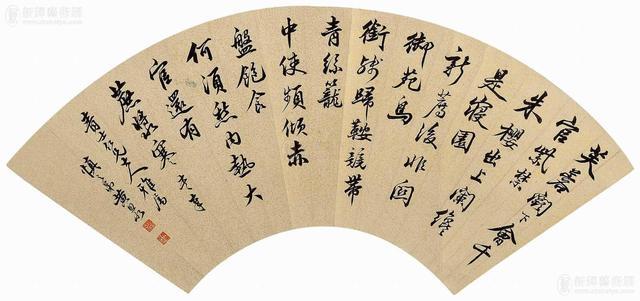 芙蓉闕下會千
官紫禁
朱櫻出上闌纔
是寢園
新薦後非關
御苑鳥
銜殘歸鞍競帶
青絲籠
中使頻傾赤
盤飽食
何須愁內熱大
官還有
蔗漿寒
青士仁兄大人雅屬
慎之弟黃思永